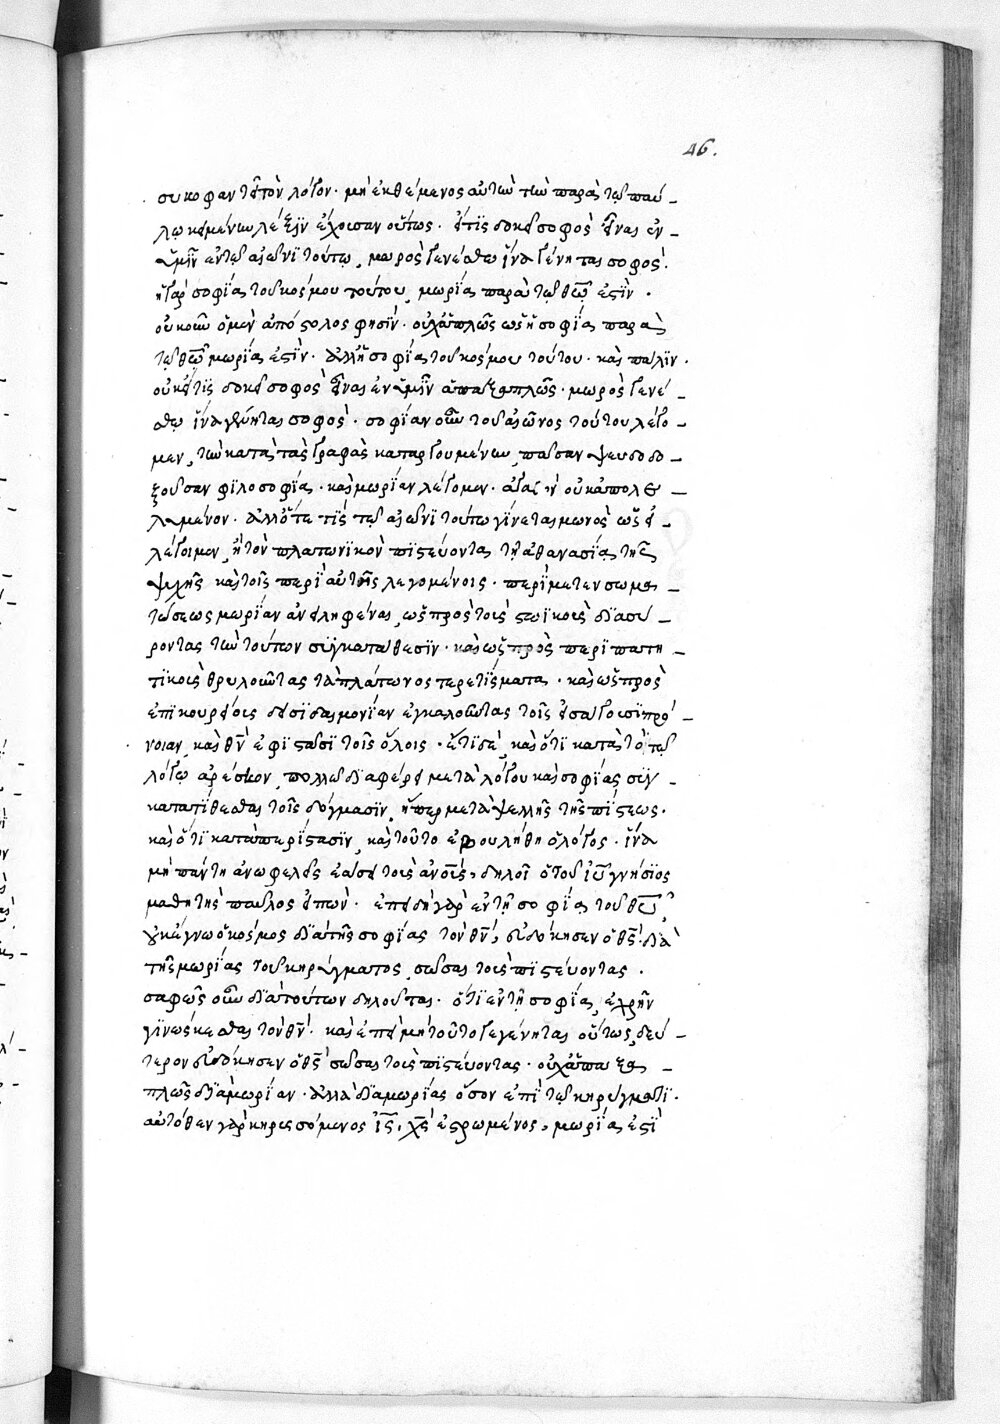 46.
συκοφαντεῖ τὸν λόγον· μὴ ἐκθέμενος αὐτὴν τὴν παρὰ τῷ παύ-
λῳ κειμένην λέξϊν ἔχουσαν οὕτως· εἴ τϊς δοκεῖ σοφὸς εἶναι ἐν
ὑμῖν ἐν τῷ αἰῶνϊ τούτῳ, μωρὸς γενέσθω ἵνα γένηται σοφός.
ἡ γὰρ σοφΐα τοῦ κόσμου τούτου, μωρΐα παρὰ τῷ θῶ ἐστΐν·
οὐκοῦν ὁ μὲν ἀπόστολος φησΐν· οὐχ ἁπλῶς ὡς ἡ σοφΐα παρὰ
τῷ θῶ μωρΐα ἐστΐν· ἀλλ' ἡ σοφΐα τοῦ κόσμου τούτου· καὶ πάλϊν·
οὐκ εἴ τϊς δοκεῖ σοφὸς εἶναι ἐν ὑμῖν ἁπαξαπλῶς· μωρὸς γενέ-
σθω ἵνα γένηται σοφός· σοφΐαν οὖν τοῦ αἰῶνος τούτου λέγο-
μεν, τὴν κατὰ τὰς γραφὰς καταργουμένην, πᾶσαν ψευδοδο-
ξοῦσαν φϊλοσοφΐαν· καὶ μωρΐαν λέγομεν ἀγαθὴν οὐκ ἀπολε-
λυμένον· ἀλλ' ὅτε τϊς τῷ αἰῶνϊ τούτῳ γΐνεται μωρός ὡς εἰ
λέγοιμεν, ἢ τὸν πλατωνϊκὸν πϊστεύοντα τῇ ἀθανασΐᾳ τῆς
ψυχῆς καὶ τοῖς περὶ αὐτῆς λεγομένοις· περὶ μετενσωμα-
τώσεως μωρΐαν ἀνειληφέναι, ὡς πρὸς τοὺς στωϊκοὺς δϊασύ-
ροντας τὴν τούτων συγκατάθεσϊν· καὶ ὡς πρὸς περϊπατη-
τϊκοὺς θρυλοῦντας τὰ πλάτωνος τερετΐσματα· καὶ ὡς πρὸς
ἐπϊκουρείους δεϊσϊδαιμονΐαν ἐγκαλοῦντας τοῖς εἰσάγουσϊ πρό-
νοιαν, καὶ θν ἐφϊστᾶσϊ τοῖς ὅλοις· ἔτϊ δὲ, καὶ ὅτϊ κατὰ τὸ τῷ
λόγῳ ἀρέσκον, πολλῷ δϊαφέρει μετὰ λόγου καὶ σοφΐας συγ-
κατατΐθεσθαι τοῖς δόγμασϊν, ἤπερ μετὰ ψιλῆς τῆς πΐστεως·
καὶ ὅτϊ κατὰ περΐστασϊν, καὶ τοῦτο ἐβουλήθη ὁ λόγος· ἵνα
μὴ πάντη ἀνωφελεῖς ἐάσῃ τοὺς ἀνους, δηλοῖ ὁ τοῦ ιυ γνήσϊος
μαθητὴς παῦλος εἰπών· ἐπειδὴ γὰρ ἐν τῇ σοφΐᾳ τοῦ θυ
οὐκ ἔγνω ὁ κόσμος δϊὰ τῆς σοφΐας τὸν θν, εὐδόκησεν ὁ θς δϊὰ
τῆς μωρΐας τοῦ κηρύγματος, σῶσαι τοὺς πϊστεύοντας·
σαφῶς οὖν δϊὰ τούτων δηλοῦται· ὅτϊ ἐν τῇ σοφΐᾳ, ἐχρῆν
γϊνώσκεσθαι τὸν θν· καὶ ἐπεὶ μὴ τοῦτο γεγένηται οὕτως, δεύ-
τερον εὐδόκησεν ὁ θς σῶσαι τοὺς πϊστεύοντας· οὐχ ἁπαξα-
πλῶς δϊὰ μωρΐαν· ἀλλὰ δϊὰ μωρΐας ὅσον ἐπὶ τῷ κηρύγματϊ·
αὐτόθεν γὰρ κηρυσσόμενος ις, χς ἐσρωμένος, μωρΐα ἐστΐ